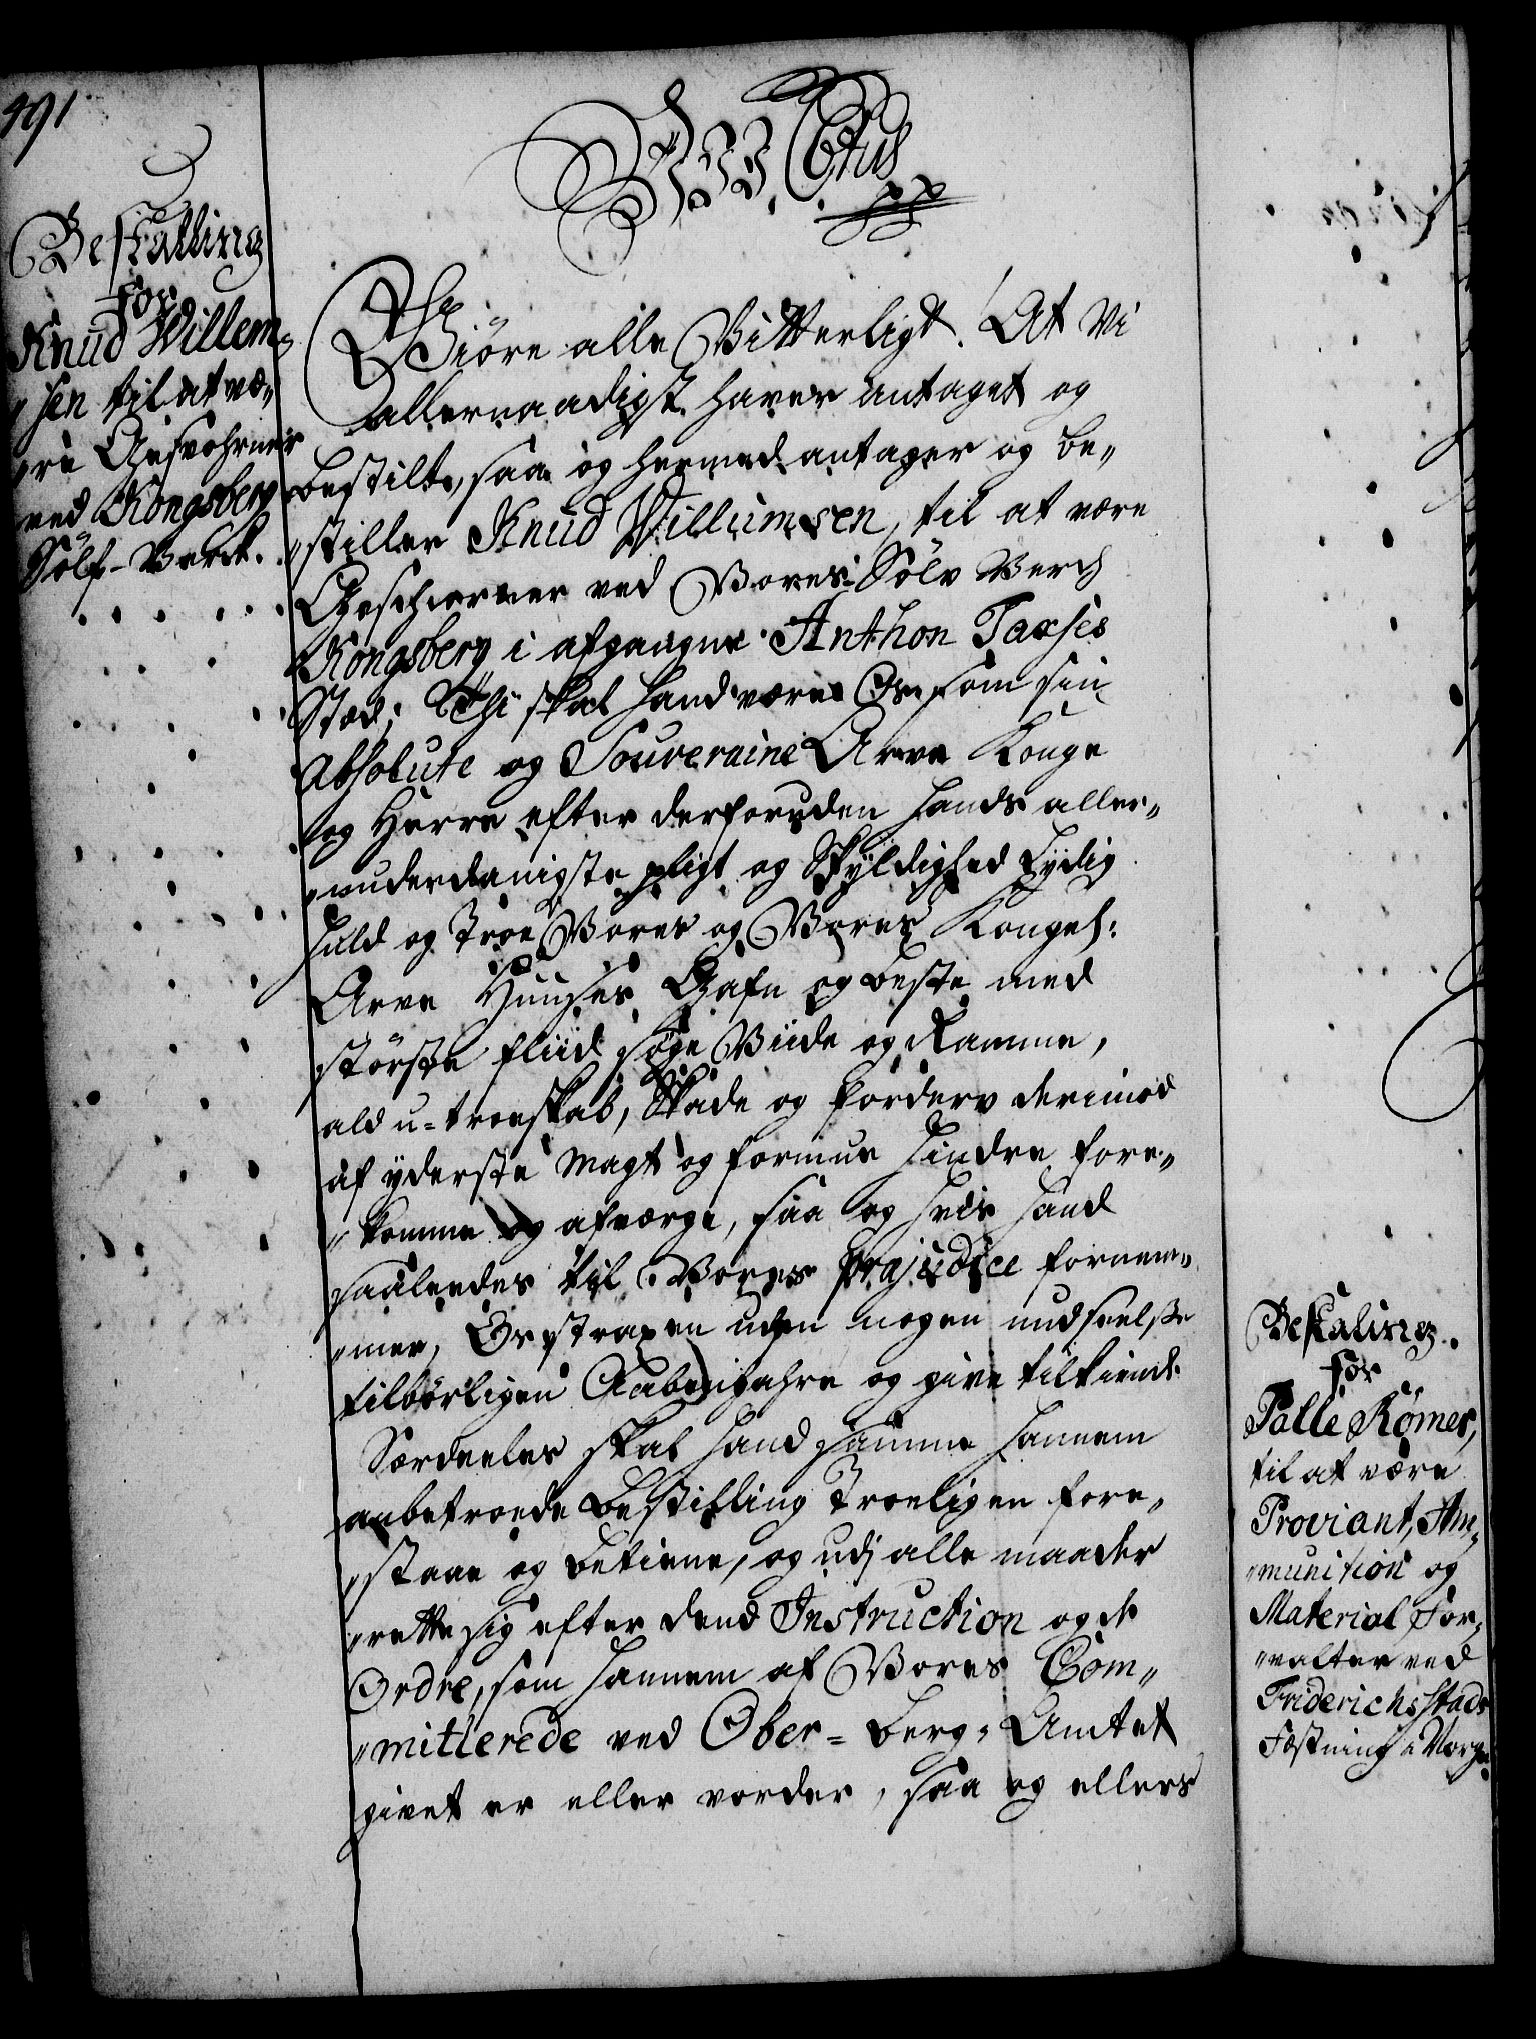 491
Bestalling
for
Knud Willem„
„sen til at væ„
„re Gesvohrner
ved Kongsberg
Sølf-Verck.
Giöre alle Vitterligt! At Vi
allernaadigst haver antaget og
bestilt, saa og hermed antager og be„
„stiller Knud Willumsen, til at være
Geschworner ved Vores Sölv Verch
Kongsberg i afgangne Anthon Taxses
Stæd; Thi skal hand være Os som sin
Absolute og Souveraine Arve Konge
og Herre efter derforuden hands aller„
„underdanigste pligt og Skyldighed Lydig
huld og Troe Vores og Vores Kongel:
Arve Huuses Gafn og beste med
störste fliid söge Viide og Ramme,
ald u-troeskab, Skade og forderv derimod
af yderste Magt og formue hindre fore„
„komme og afværge, saa og hvis hand
saaledes til Vores præjudice fornem„
„mer, Os straxen uden nogen undseelse
tilbörligen Aabenbahre og give tilkiende
Særdeeles skal hand samme hannem
anbetroede bestilling Troeligen fore„
„staae og betiene, og udj alle maader
„rette sig efter dend Instruction og de
Ordre, som hannem af Vores Com„
„mitterede ved Ober-Berg-Amtet
givet er eller vorder, saa og ellers
Bestaling
for
Palle Rømer,
til at være
Proviant, Am„
„munition og
Material For„
„valter ved
Friderichsstads
Fæstning i Norge